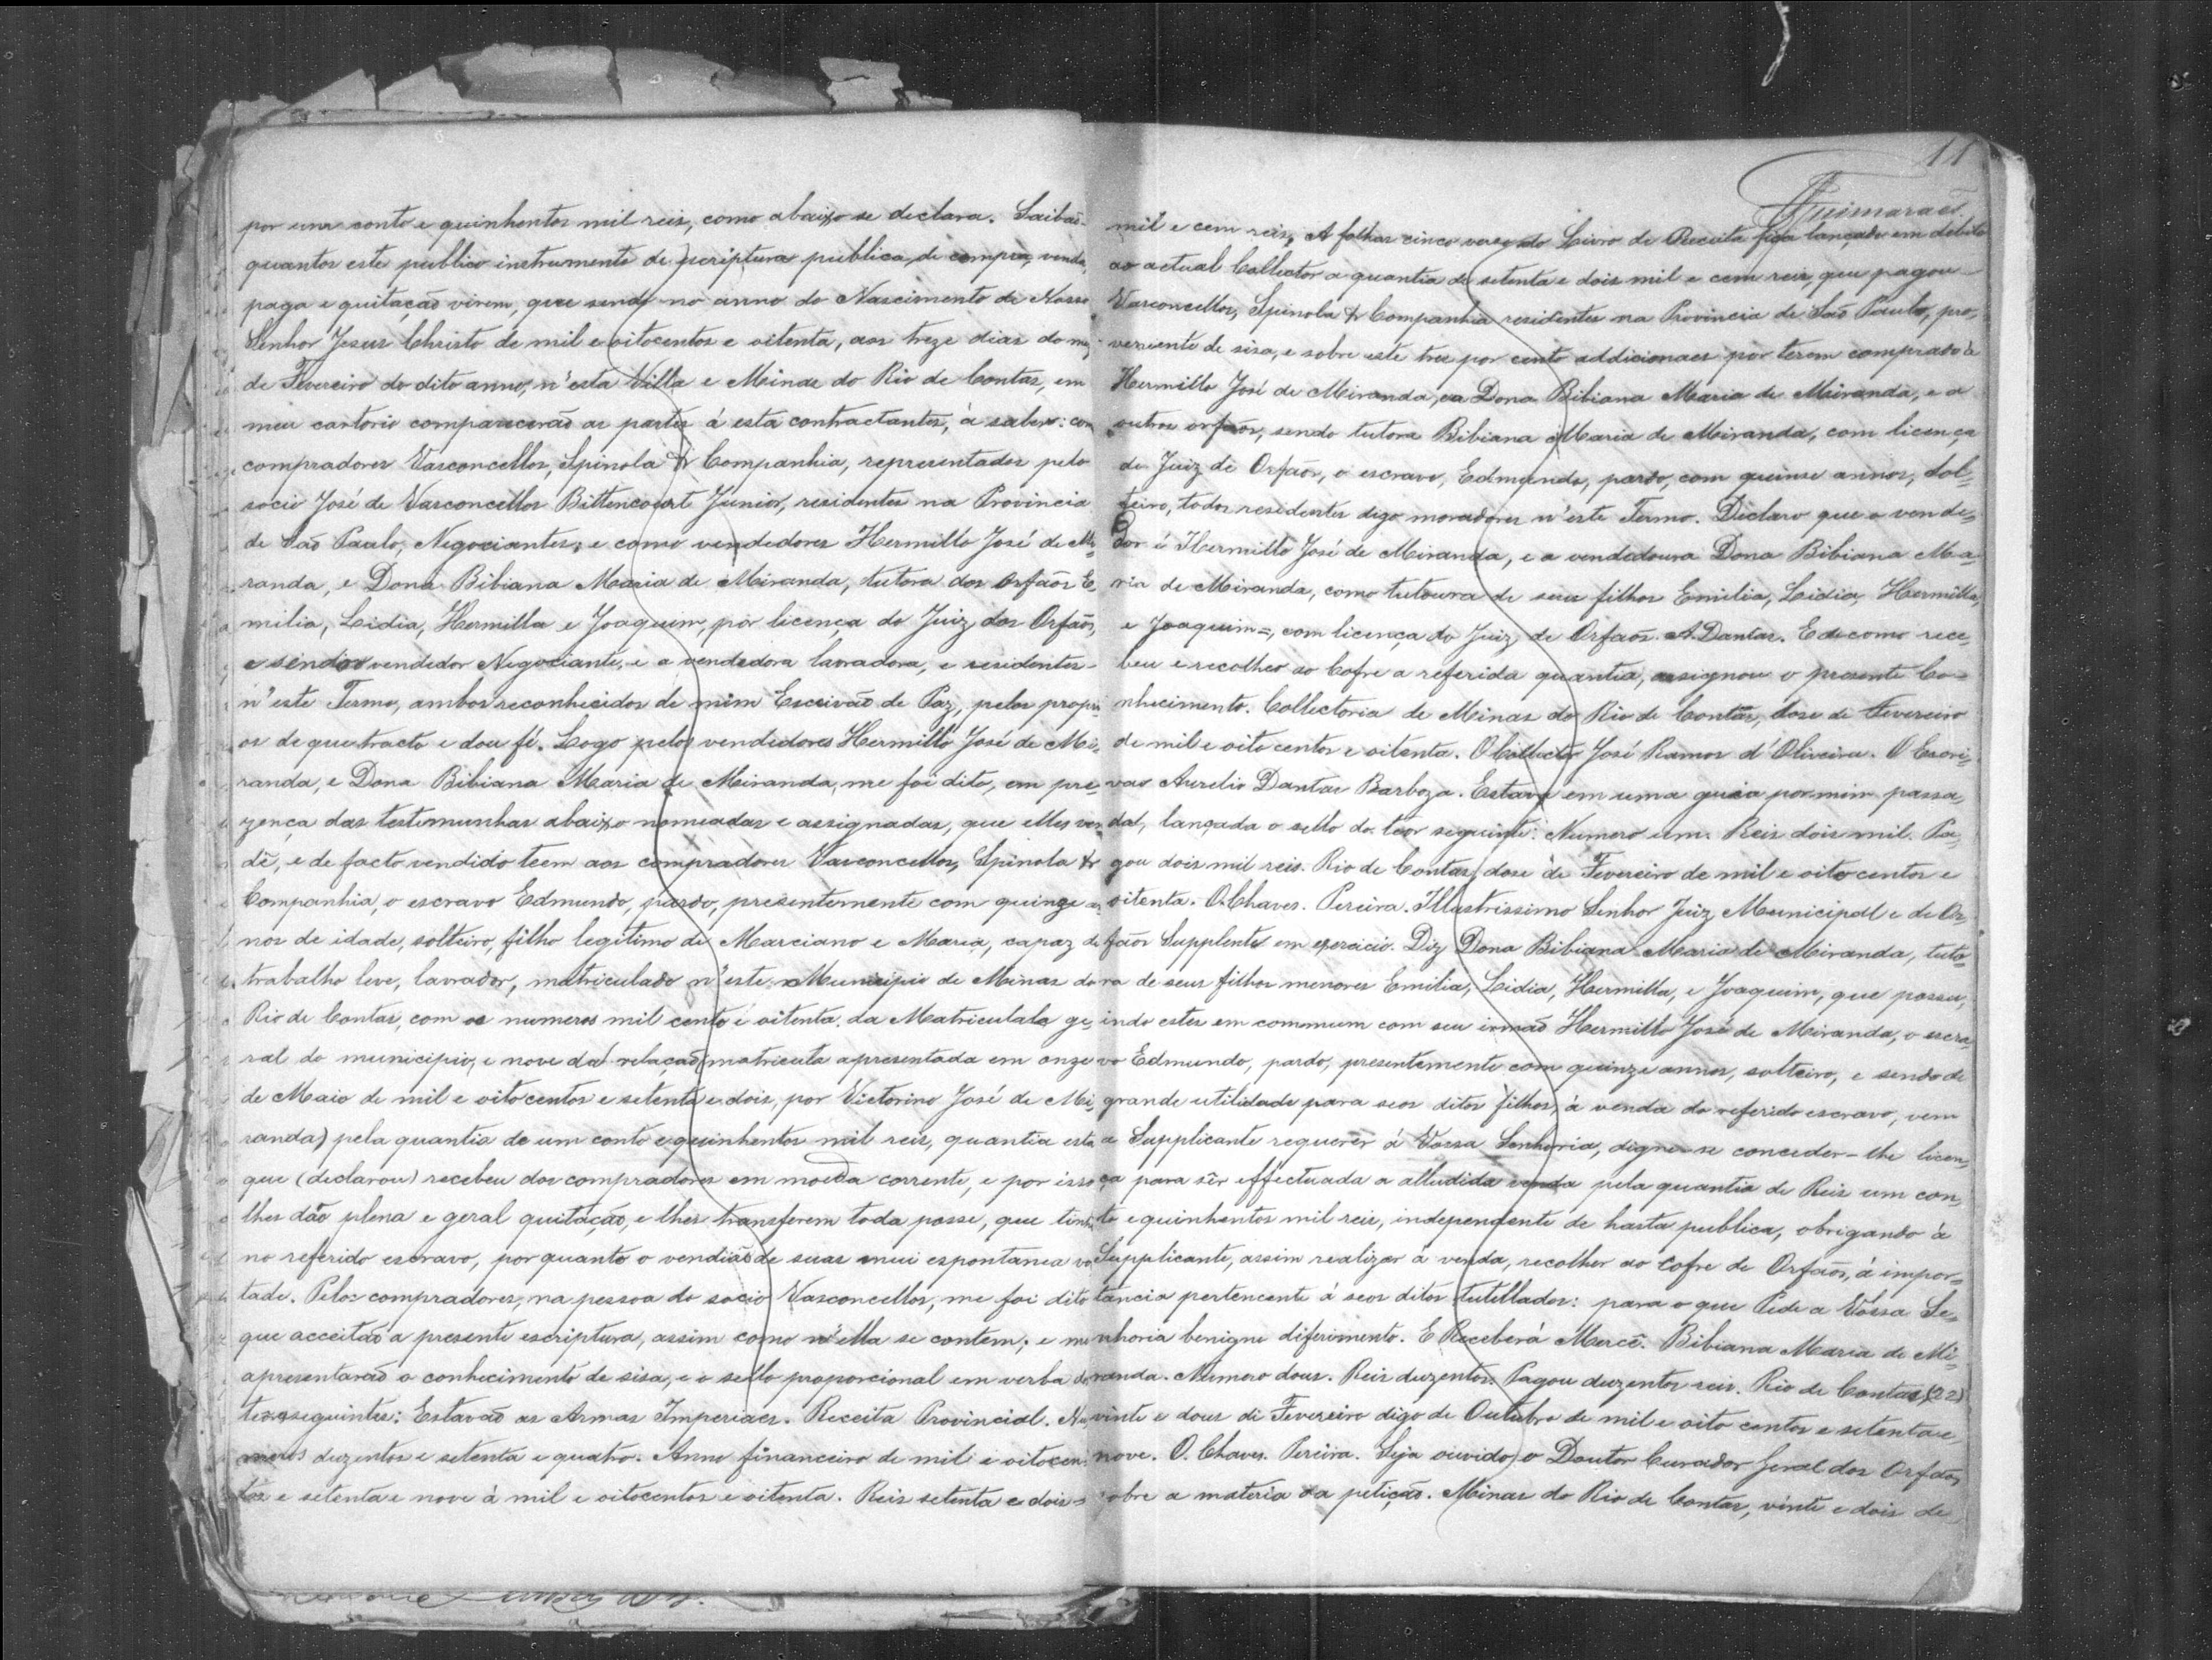 por um conto e quinhentos mil reis, como abaixo se declara. Saibaõ
quantos este publico instrumento de escriptura publica, de compra, venda,
paga e quitaçaõ virem, que sendo no anno do Nascimento de Nosso
Senhor Jesus Christo de mil e oitocentos e oitenta, aos treze dias do mez
de Fevereiro do dito anno, n'esta Villa e Minas do Rio de Contas, em
meu cartorio comparecerão as partes á esta contractantes, á saber: como
compradores Vasconcellos, Spinola & Companhia, representados pelo
socio José de Vasconcellos Bittencourt Junior, residentes na Provincia
de Saõ Paulo, Negociantes; e como vendedores Hermillo José de Mi-
randa, e Dona Bibiana Maria de Miranda, tutora dos Orfaõs E-
milia, Lidia, Hermilla e Joaquim, por licença do Juiz dos Orfaõs,
e sendo o vendedor Negociante, e a vendedora lavradora, e residentes
n'este Termo, ambos reconhecidos de mim Escrivaõ de Paz, pelos propri-
os de que tracto e dou fé. Logo pelos vendedores Hermillo José de Mi-
randa, e Dona Bibiana Maria de Miranda, me foi dito, em pre-
zença das testimunhas abaixo nomeadas e assignadas, que elles ven-
dê, e de facto vendido teem aos compradores Vasconcellos, Spinola &
Companhia, o escravo Edmundo, pardo, presentemente com quinze an-
nos de idade, solteiro, filho legitimo de Marciano e Maria, capaz de
trabalho leve, lavrador, matriculado n'este Municipio de Minas do
Rio de Contas, com os numeros mil cento e oitenta da Matricula ge-
ral do municipio, e nove da relaçaõ matricula apresentada em onze
de Maio de mil e oitocentos e setenta e dois, por Victorino José de Mi-
randa) pela quantia de um conto e quinhentos mil reis, quantia esta
que (declarou) recebeu dos compradores em moeda corrente, e por isso
lhes dão plena e geral quitação, e lhes transferem toda posse, que tinhão
no referido escravo, porquanto o vendiaõ de suas mui espontanea von
tade. Pelos compradores, na pessoa do socio Vasconcellos, me foi dito
que acceitaõ a presente escriptura, assim como n'ella se contem; e me
apresentaraõ o conhecimento de sisa, e o sello proporcional em verba do
teor seguintes: Estavaõ as Armas Imperiaes. Receita Provincial. Nu-
meros duzentos e setenta e quatro. Anno financeiro de mil e oitocen-
tos e setenta e nove á mil e oitocentos e oitenta. Reis setenta e dois
11
Guimaraẽs
mil e cem reis. A folhas cinco verso do Livro de Receita fica lançado em débito
ao actual Collector a quantia de setenta e dois mil e cem reis, que pagou
Vasconcellos, Spinola & Companhia residentes na Provincia de Saõ Paulo, pro-
veniente de sisa, e sobre este tres por cento addicionaes por terem comprado á
Hermillo José de Miranda, ea Dona Bibiana Maria de Miranda, e a
outros orfaõs, sendo tutora Bibiana Maria de Miranda, com licença
do Juiz de Orfaõs, o escravo, Edmundo, pardo, com quinse annos, sol-
teiro, todos residentes digo moradores n'este Termo. Declaro que o vende-
dor é Hermillo José de Miranda, e a vendedoura Dona Bibiana Ma-
ria de Miranda, como tutoura de seus filhos Emilia, Lidia, Hermilla,
e Joaquim=, com licença do Juiz de Orfaõs. A. Dantas. E de como rece-
beu e recolheo ao Cofre a referida quantia, assignou o presente Co-
nhecimento. Collectoria de Minas do Rio de Contas, dose de Fevereiro
de mil e oito centos e oitenta. O Collector José Ramos d'Oliveira. O Escri-
vaõ Aurelio Dantas Barboza. Estava em uma guia por mim passa-
da, lançada o sello do teor seguinte: Numero um. Reis dois mil. Pa-
gou dois mil reis. Rio de Contas, dose de Fevereiro de mil e oito centos e
oitenta. O. Chaves. Pereira. Illustrissimo Senhor Juiz Municipal e de Or-
faõs Supplente em exercicio. Diz Dona Bibiana Maria de Miranda, tuto-
ra de seus filhos menores Emilia, Lidia, Hermilla, e Joaquim, que possu-
indo estes em commum com seu irmaõ Hermillo José de Miranda, o escra-
vo Edmundo, pardo, presentemente com quinze annos, solteiro, e sendo de
grande utilidade para seos ditos filhos, á venda do referido escravo, vem
a Supplicante requerer á Vossa Senhoria, digne-se conceder-lhe licen-
ça para sêr effectuada a alludida venda pela quantia de Reis um con-
to e quinhentos mil reis, independente de hasta publica, obrigando á
Supplicante, assim realizar á venda, recolher ao Cofre de Orfaõs, á impor-
tancia pertencente á seos ditos tutellados: para o que Pede a Vossa Se-
nhoria benigno diferimento. E Receberá Mercê. Bibiana Maria de Mi-
randa. Numero dous. Reis duzentos. Pagou duzentos reis. Rio de Contas, (22)
vinte e dous di Fevereiro digo de Outubro de mil e oito centos e setenta e
nove. O. Chaves. Pereira. Seja ouvido o Doutor Curador Geral dos Orfaõs,
sobre a materia da petiçaõ. Minas do Rio de Contas, vinte e dois de